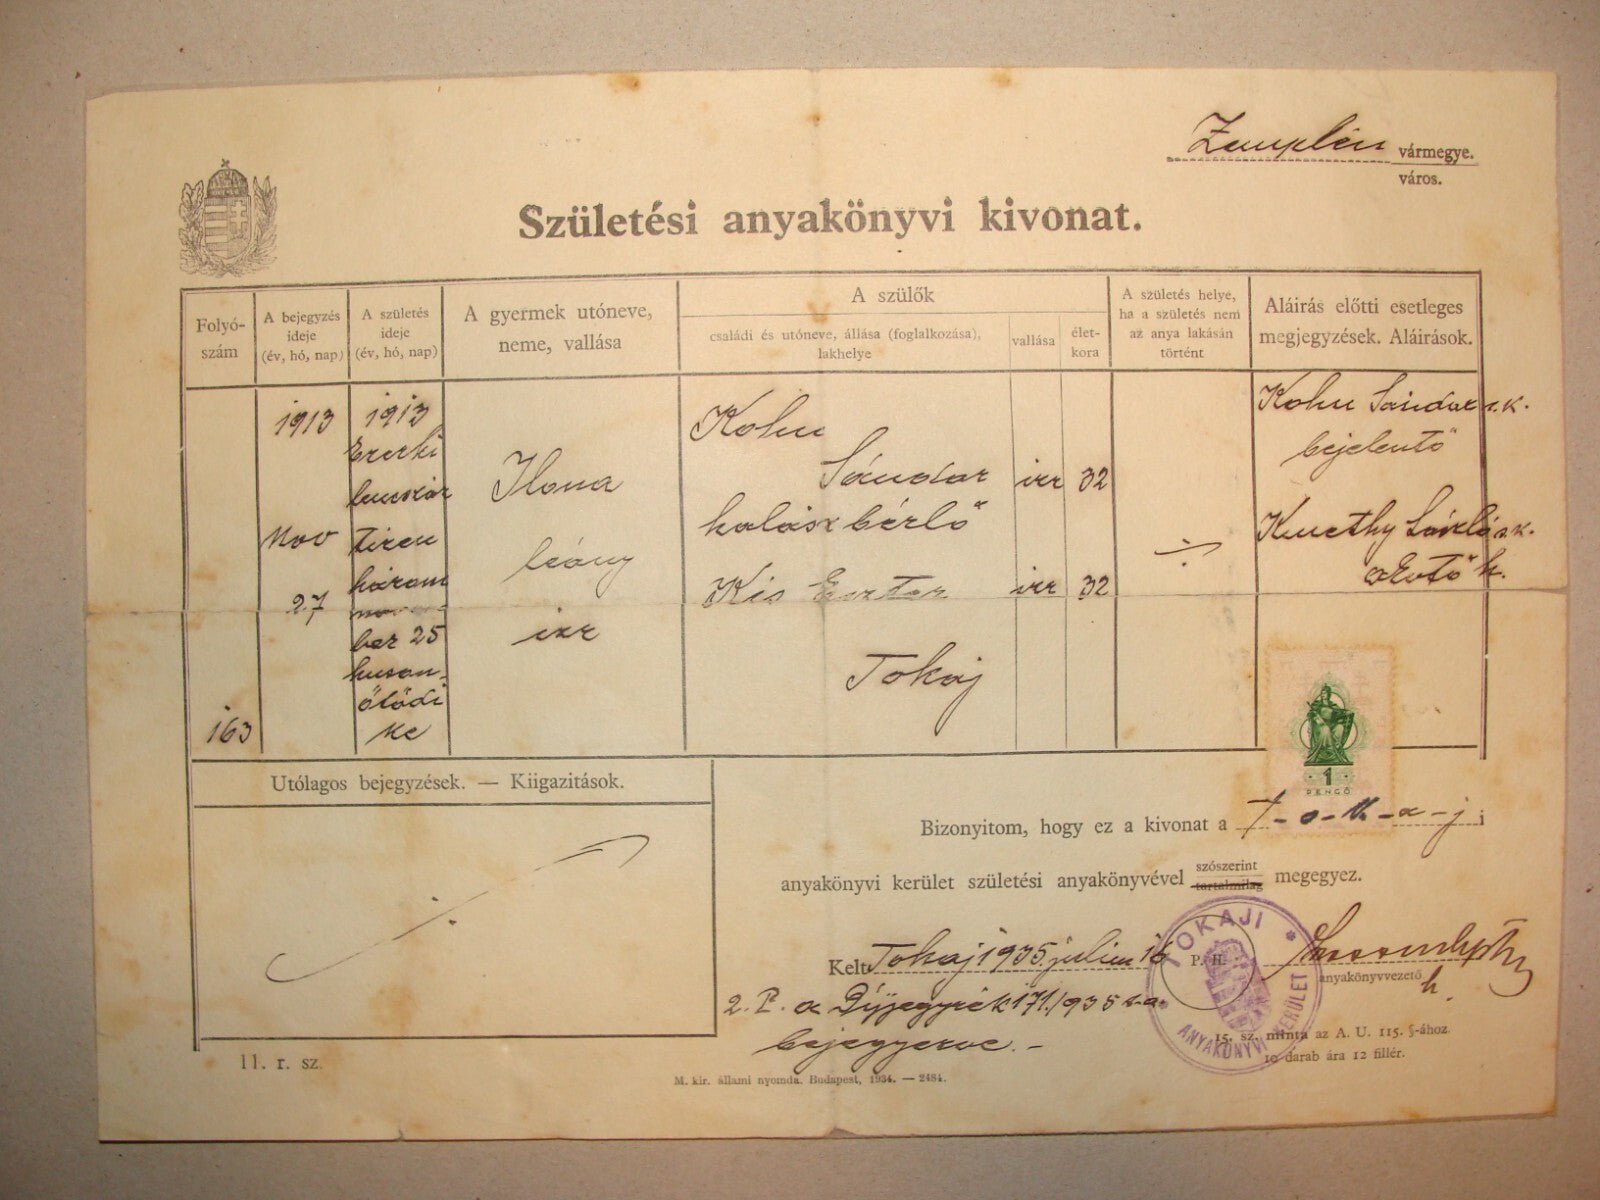 Zemplén vármegye.
város.
Születési anyakönyvi kivonat.
Folyó-
szám
A bejegyzés
ideje
(év, hó, nap)
A születés
ideje
(év, hó, nap)
A gyermek utóneve,
neme, vallása
A szülők
családi és utóneve, állása (foglalkozása),
lakhelye
vallása
élet-
kora
A születés helye,
ha a születés nem
az anya lakásán
történt
Aláírás előtti esetleges
megjegyzések. Aláírások.
163
1913
Nov
27
1913
Ezerki
lencszáz
tizen
három
novem
ber 25
huszon
ötödi
ke
Ilona
leány
izr
Kohn
Sándor
halászbérlő
Kis Eszter
Tokaj
izr
izr
32
32
Kohn Sándor s.k.
bejelentő
László s.k.
1 PENGŐ
Utólagos bejegyzések. — Kiigazitások.
Bizonyitom, hogy ez a kivonat a T-o-k-a-j-i
anyakönyvi kerület születési anyakönyvével szószerint megegyez.
tartalmilag
Kelt Tokaj 1935. julius 16
P. H.
anyakönyvvezető
h.
2. P. a Díjjegyzék 171/935 sz.a.
bejegyezve.-
TOKAJI ANYAKÖNYVI KERÜLET
15. sz. minta az A. U. 115. §-ához.
10 darab ára 12 fillér.
11. r. sz.
M. kir. állami nyomda. Budapest, 1934. — 2484.